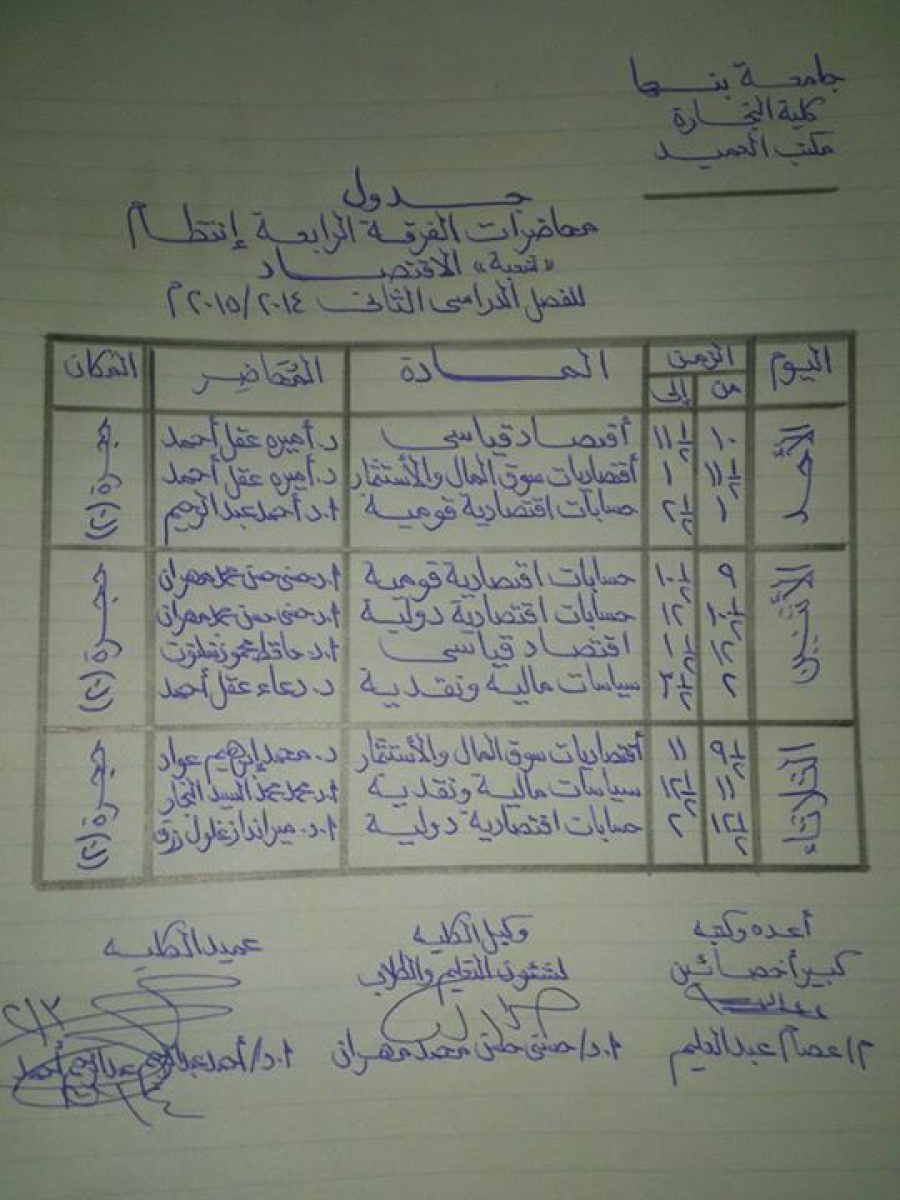 جامعة بنها
كلية التجارة
مكتب العميد
جدول
محاضرات الفرقة الرابعة إنتظام
"شعبة" الاقتصاد
للفصل الدراسى الثانى ٢٠١٥/٢٠١٤م
اليوم الزمن المادة المُحَاضِر المكان
من إلى
الأحد
١٠ ١١½ أقتصاد قياسى د. أميره عقل أحمد
١١½ ١ أقتصاديات سوق المال والأستثمار د. أميره عقل أحمد
١ ٢½ حسابات اقتصادية قومية ا.د أحمد عبدالرحيم
حجرة (٢٠)
الأثنين
٩ ١٠½ حسابات اقتصادية قومية ا.د حسنى حسن محمد مهران
١٠½ ١٢ حسابات اقتصادية دولية ا.د حسنى حسن محمد مهران
١٢ ١½ اقتصاد قياسى ا.د شلتوت
٢ ٣½ سياسات مالية ونقدية د. دعاء عقل أحمد
حجرة (٢٠)
الثلاثاء
٩½ ١١ أقتصاديات سوق المال والأستثمار د. محمد إبراهيم عواد
١١ ١٢½ سياسات مالية ونقدية ا.د محمد محمد السيد النجار
١٢½ ٢ حسابات اقتصادية دولية ا.د. ميراندا زغلول رزق
حجرة (٢٠)
أعده وكتبه
كبير أخصائين
م/ عصام عبدالعليم
وكيل الكليه
لشئون التعليم والطلاب
ا.د/ حسنى حسن محمد مهران
عميد الكليه
ا.د/ أحمد عبدالرحيم